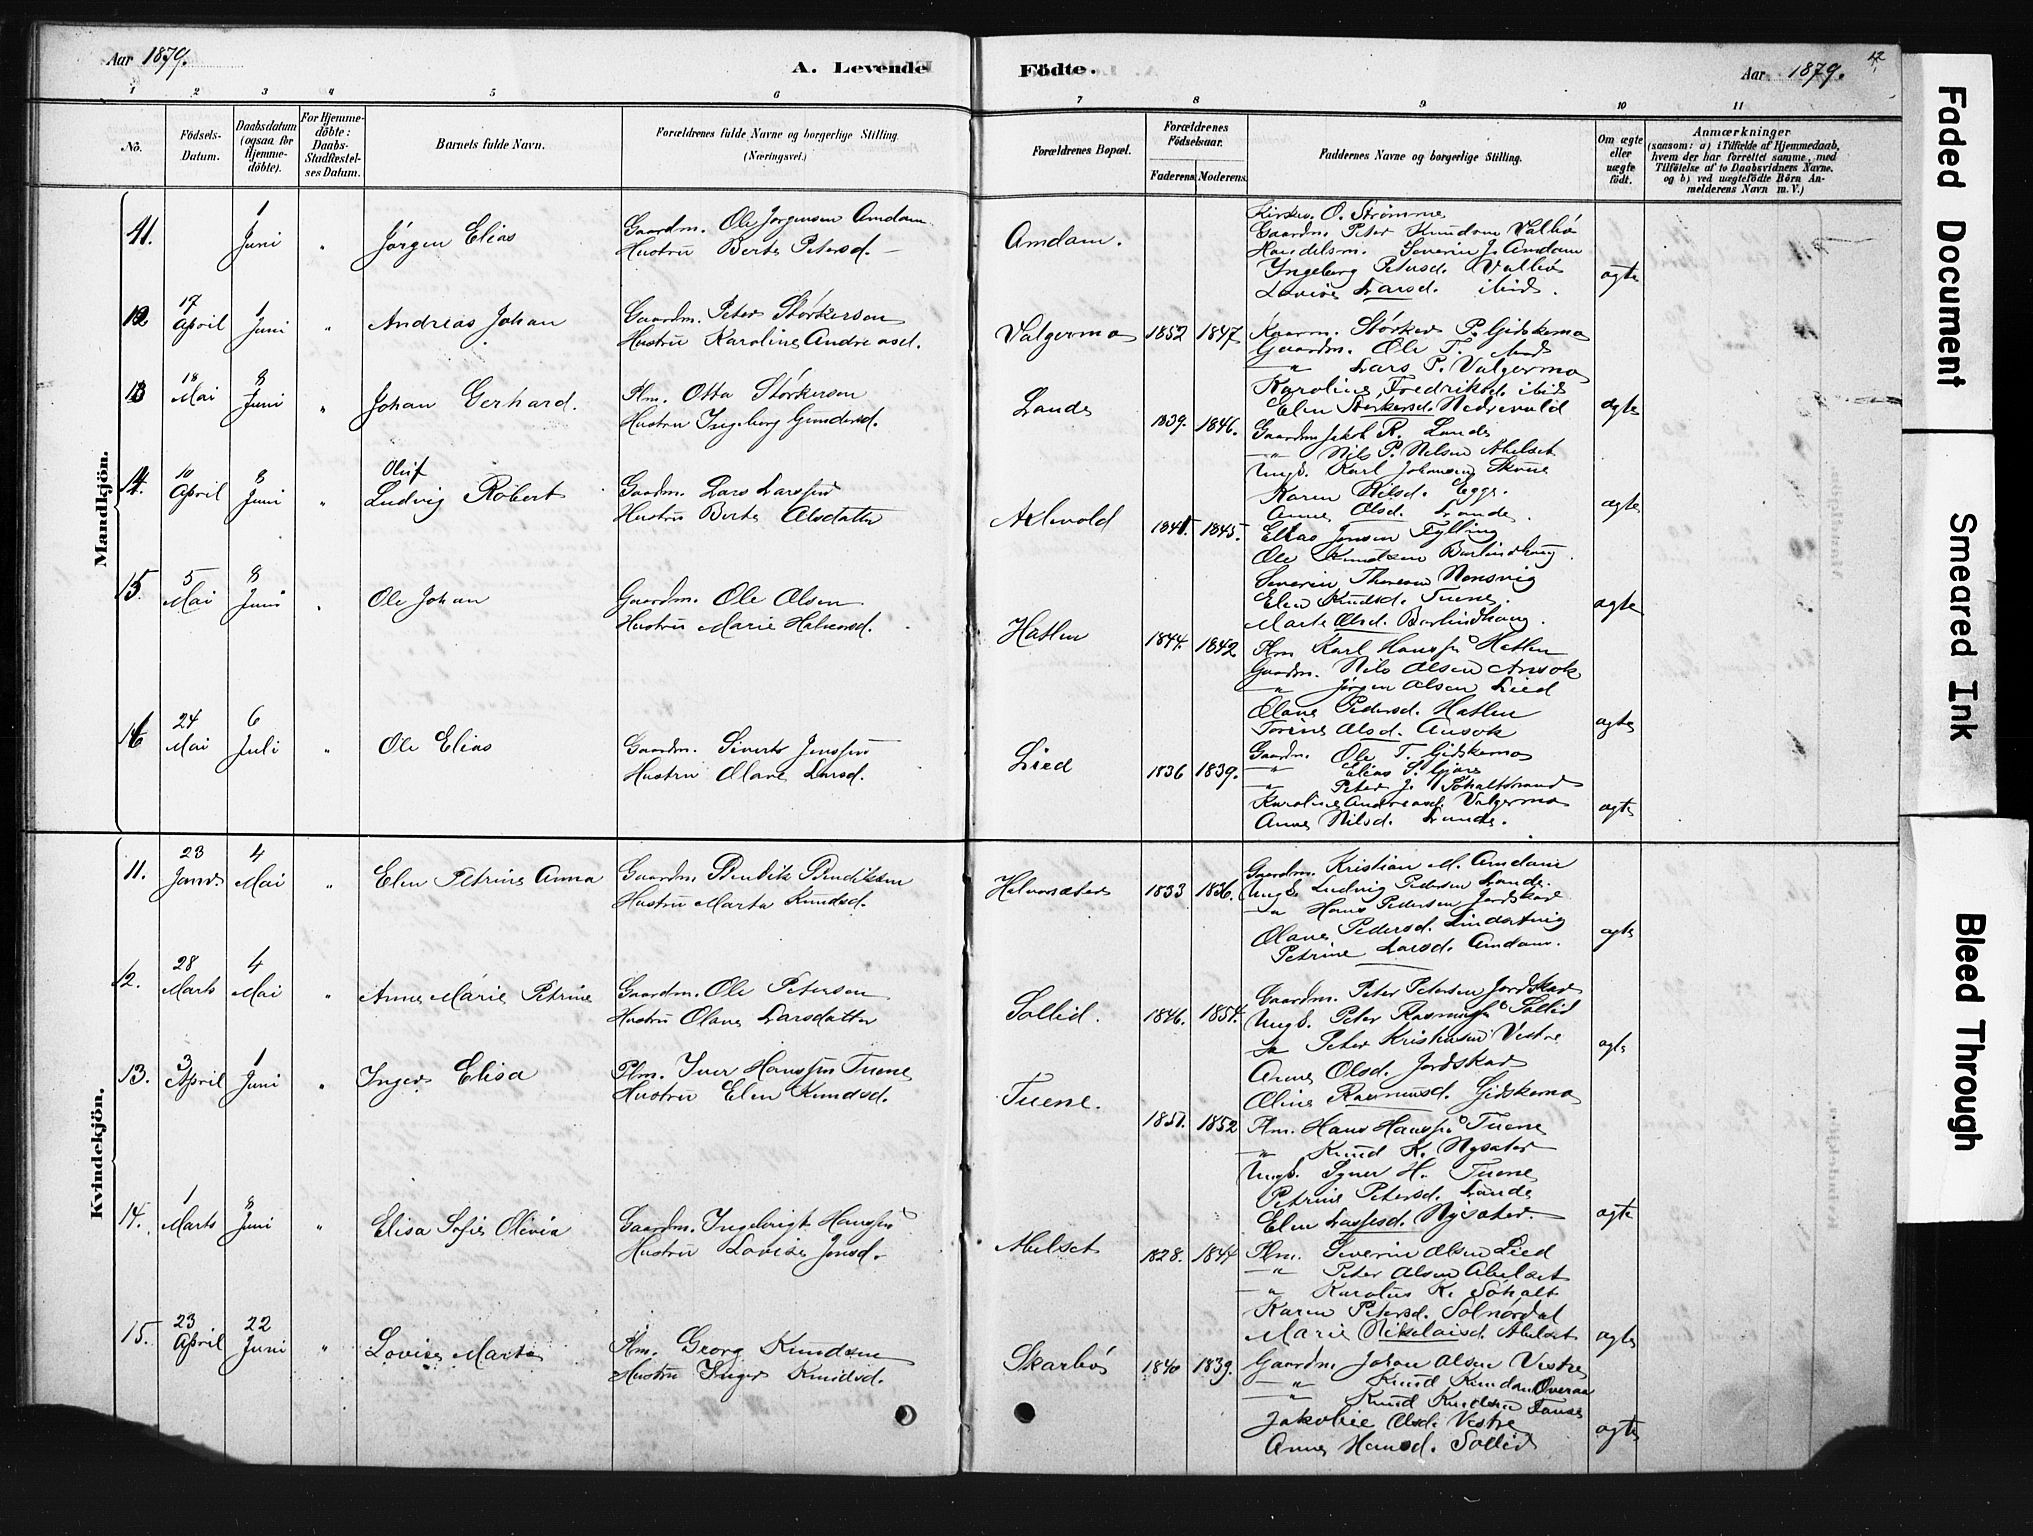 Aar 1879.
A. Levende Födte.
Aar 1879.
12
1 2 3 4 5 6 7 8 9 10 11
No.
Födsels-Datum.
Daabsdatum (ogsaa for Hjemmedöbte).
For Hjemmedöbte: Daabs-Stadfæstelses Datum.
Barnets fulde Navn.
Forældrenes fulde Navne og borgerlige Stilling. (Næringsvei.)
Forældrenes Bopæl.
Forældrenes Födselsaar.
Faderens Moderens.
Faddernes Navne og borgerlige Stilling.
Om ægte eller uægte födt.
Anmærkninger
(saasom: a) i Tilfælde af Hjemmedaab, hvem der har forrettet samme, med Tilföielse af to Daabsvidners Navne. og b) ved uægtefödte Börn Anmelderens Navn m. V.)
Mandkjön.
11. 1 Juni " Jørgen Elias
Gaardm. Ole Jørgensen Amdam
Hustru Berte Petersd.
Amdam.
Kirkes. O. Strømme
Gaardm. Peter Knudsen Valbø
Handelsm. Severin J. Amdam
Ingeborg Petersd. Valbø
Lovise Larsd. ibid.
ægte
12 17 April 1 Juni " Andreas Johan
Gaardm. Peter Størkersen
Hustru Karoline Andreasd.
Valgermo 1852 1847
Kaarm. Størker P. Gidskemo
Gaardm. Ole T. ibid
" Lars P. Valgermo
Karoline Fredriksd. ibid
Elen Størkersd. Nedrevold
ægte
13 18 Mai 8 Juni " Johan Gerhard.
Plm. Otto Størkersen
Hustru Ingeborg Gundersd.
Lande 1839. 1846.
Gaardm. Jakob R. Lande
" Nils P. Nelsen Abelset
Ungk. Karl Johansen Skone
Karen Nilsd. Egge.
Anne Olsd. Lande.
ægte
14. 10 April 8 Juni " Oluf Ludvig Robert
Gaardm. Lars Larssen
Hustru Berte Olsdatter
1845.
Elias Jensen Fylling
Ole Knudsen Barlindhoug.
Severin Nonsvig
Elen Knudsd. Tuene.
Marte Olsd. Barlindhoug.
ægte
15. 5 Mai 8 Juni " Ole Johan
Gaardm. Ole Olsen
Hustru Marie Halvorsd.
Hatlen 1844. 1842
Plm Karl Hanssen Hatlen
Gaardm. Nils Olsen Ansok
" Jørgen Olsen Lied
Olave Pedersd. Hatlen
Torine Olsd. Ansok
ægte
16 24 Mai 6 Juli " Ole Elias
Gaardm. Sivert Jenssen
Hustru Olave Larsd.
Lied 1836 1839.
Gaardm. Ole T. Gidskemo
" Elias S. Gjøre
" Peter J. Søholtstrand
Karoline Andreasd. Valgermo
Anne Nilsd. Lande.
ægte
Kvindekjön.
11. 23 Janr 4 Mai " Elen Petrine Anna
Gaardm. Bendik Bendiksen
Hustru Marta Knudsd.
Halvorsæter 1833 1836.
Gaardm. Kristian M. Amdam
Ungk. Ludvig Pedersen Lande.
" Hans Pedersen Jordskar
Olave Pedersd. Lindsetvig
Petrine Larsd. Amdam.
ægte
12. 28 Marts 4 Mai " Anne Marie Petrine
Gaardm. Ole Petersen
Hustru Olave Larsdatter
Sollid. 1846. 1854.
Gaardm. Peter Petersen Jordskar
Ungk. Peter Rasmussen Sollid
" Peter Kristiansen Vestre
Anne Olsd. Jordskar
Oline Rasmusd. Gidskemo
ægte
13. 3 April 1 Juni " Inger Elisa
Plm. Iver Hanssen Tuene
Hustru Elen Knudsd.
Tuene. 1851. 1852
Plm. Hans Hanssen Tuene
" Knud K. Nysæter
Ungk. Syver H. Tuene
Petrine Petersd. Lande
Elen Lassesd. Nysæter.
ægte
14. 1 Marts 8 Juni " Elisa Sofie Olivia
Gaardm. Ingebrigt Hanssen
Hustru Lovise Jonsd.
Abelset 1828. 1844
Plm. Severin Olsen Lied
" Peter Olsen Abelset
" Karolus K. Søholt
Karen Petersd. Solnørdal
Marie Nikolaisd. Abelset
ægte
15. 23 April 22 Juni " Lovise Marta
Plm. Georg Knudsen
Hustru Inger Knudsd.
Skarbø 1840 1839.
Gaardm. Johan Olsen Vestre
" Knud Knudsen Overaa
" Knud Knudsen Tuene
Jakobie Olsd. Vestre
Anne Hansd. Sollid
ægte
Faded Document
Smeared Ink
Bleed Through